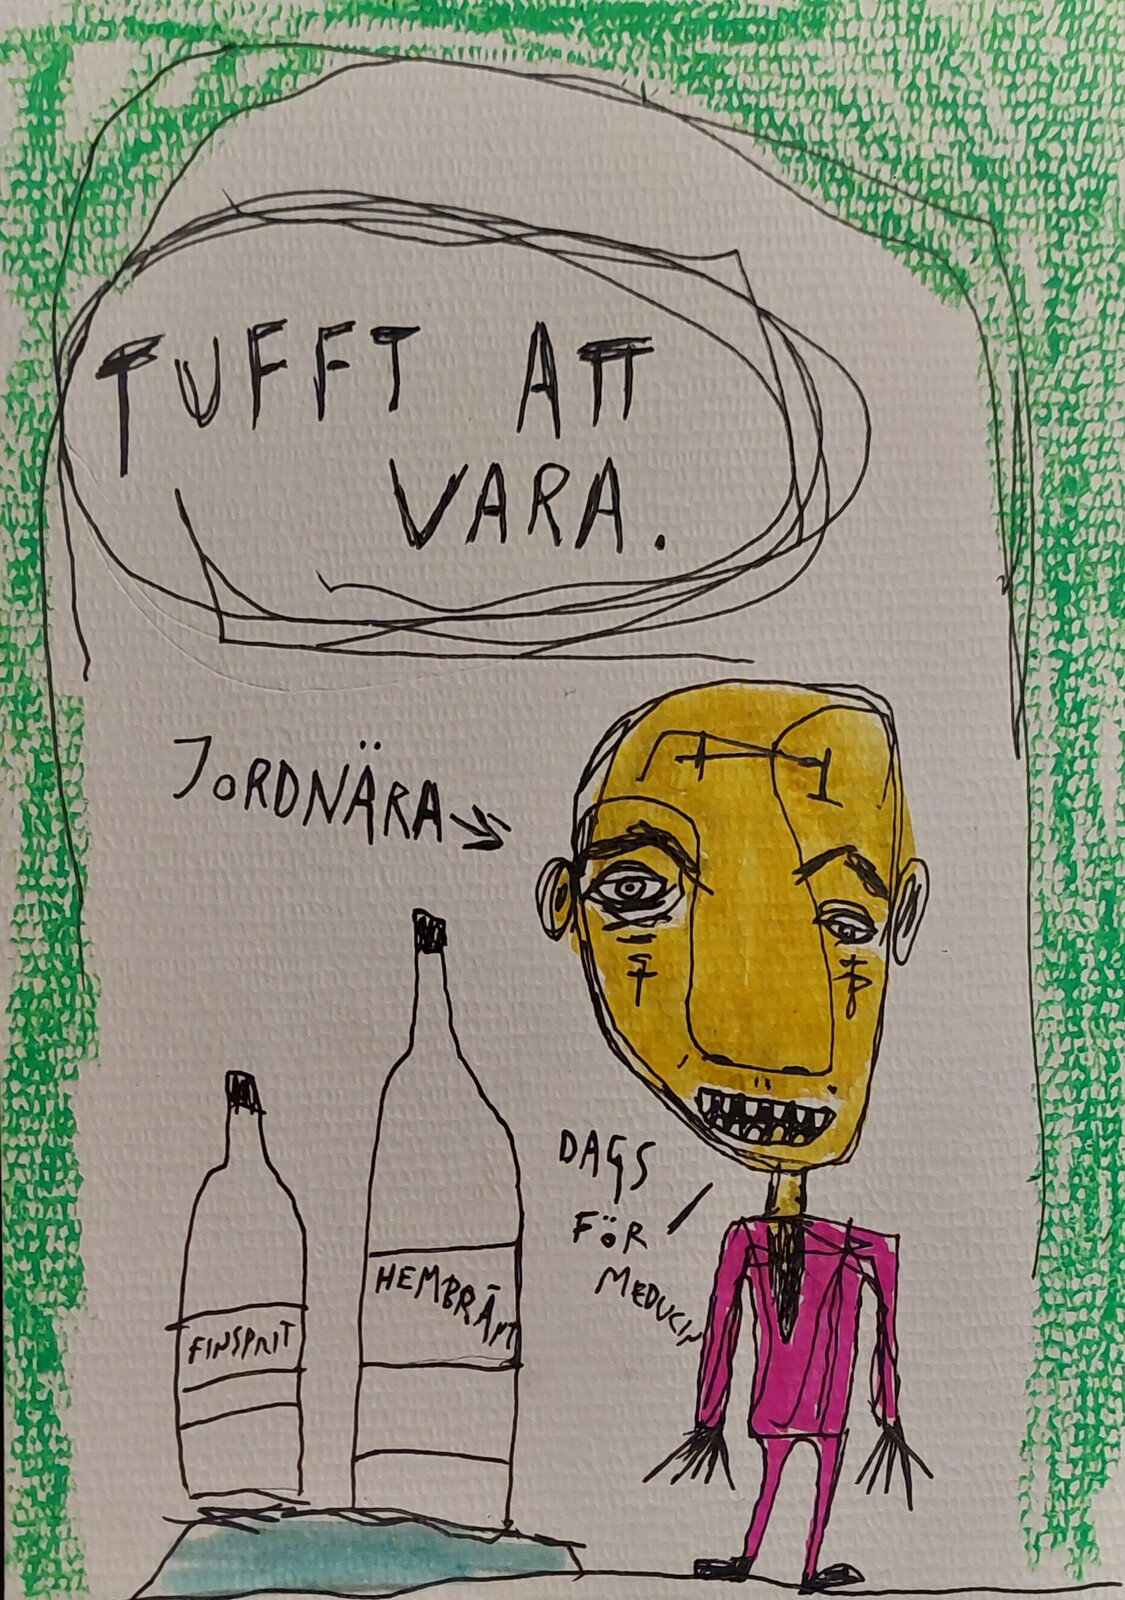 TUFFT ATT
VARA.
JORDNÄRA
HEMBRÄNT
FINSPRIT
DAGS
FÖR
MEDUCIN